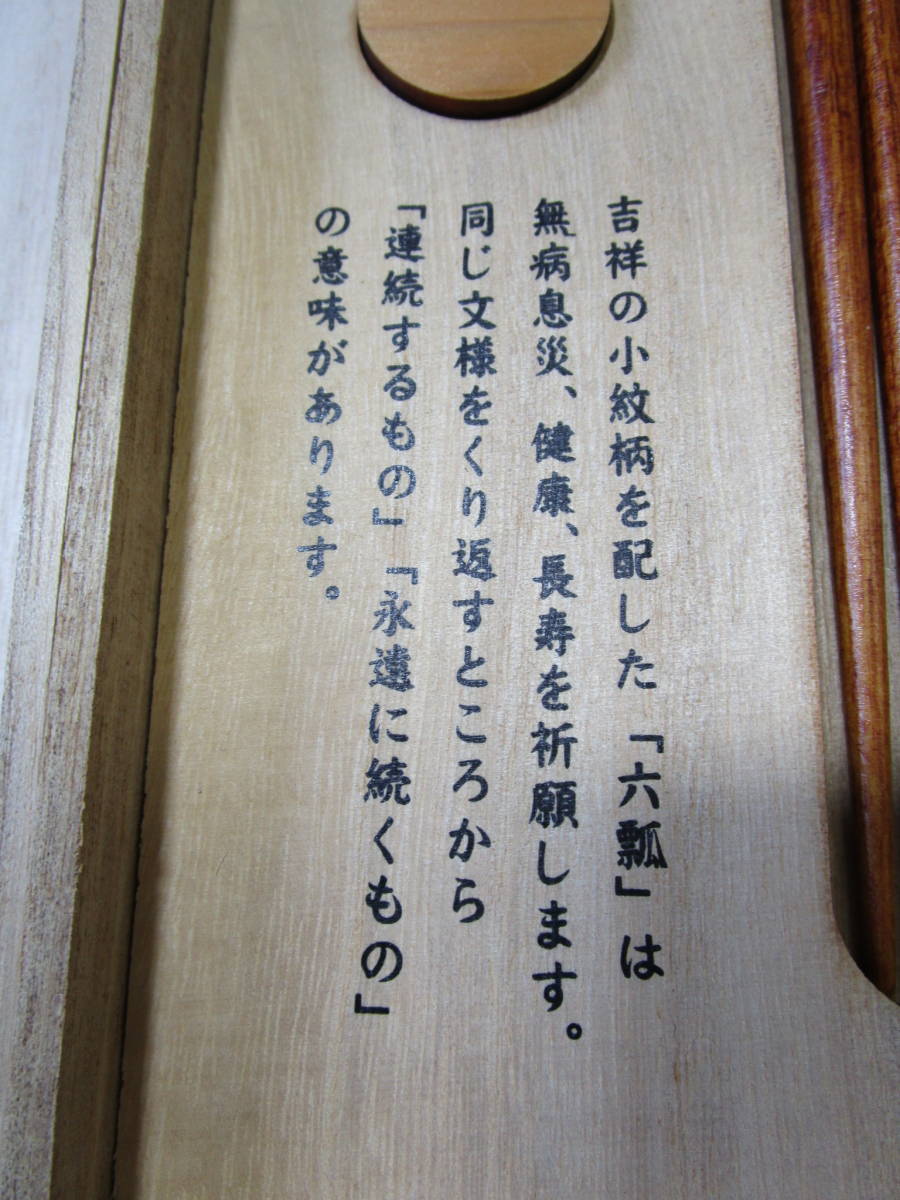 吉祥の小紋柄を配した「六瓢」は
無病息災、健康、長寿を祈願します。
同じ文様をくり返すところから
「連続するもの」「永遠に続くもの」
の意味があります。